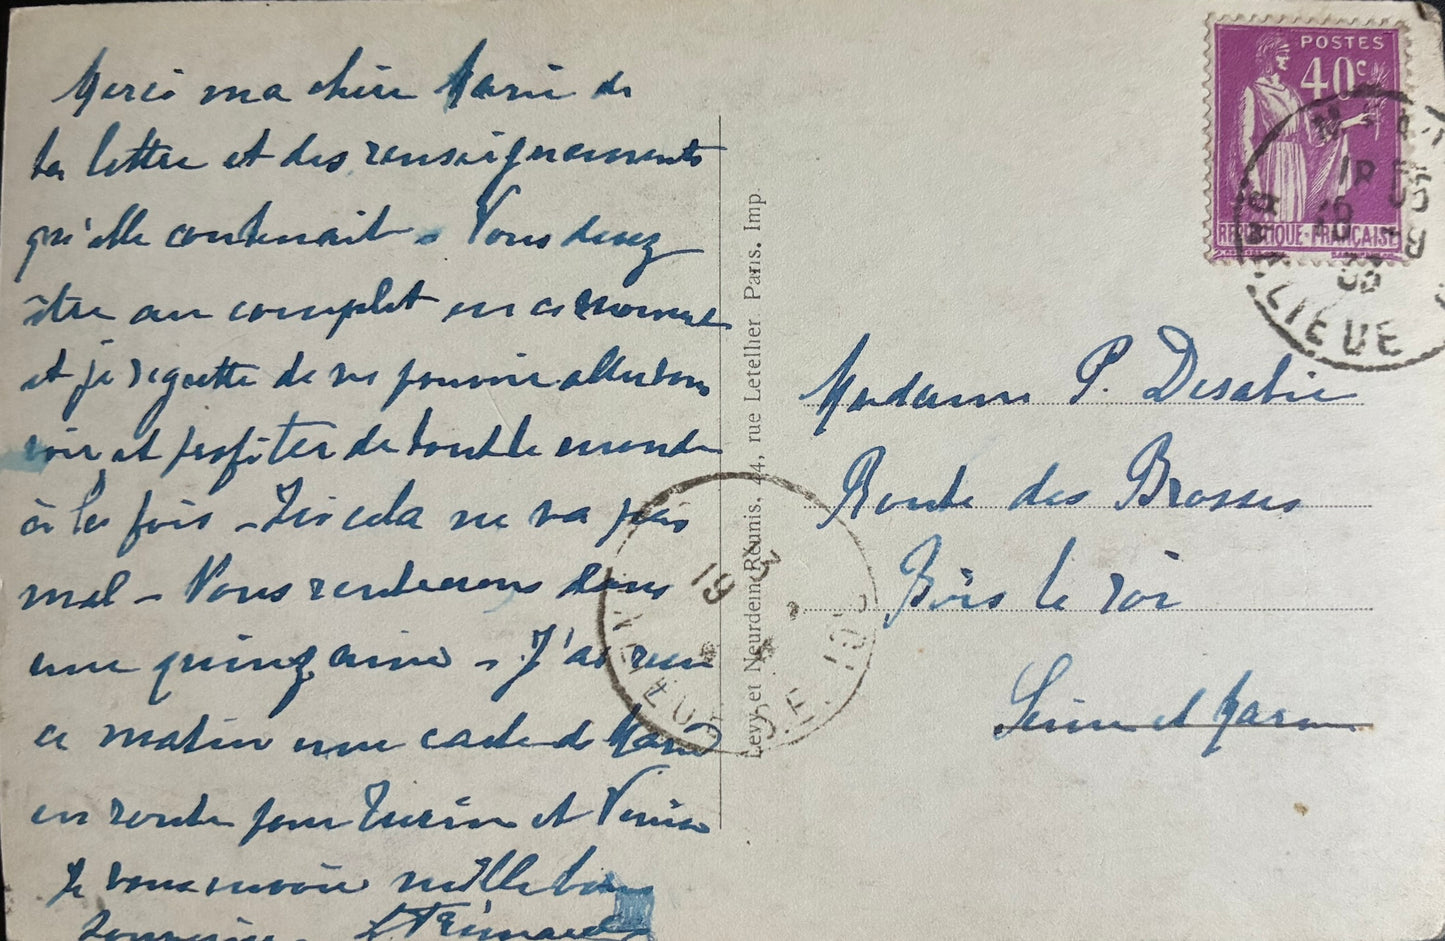 Merci ma chère Marie de
ta lettre et des renseignements
qu'elle contenait. Vous devez
être au complet en ce moment
et je regrette de ne pouvoir aller vous
voir et profiter de tout le monde
à la fois - Ici cela ne va pas
mal - Nous rentrerons dans
une quinzaine - J'ai reçu
ce matin une carte de Marie
en route pour Turin et Venise
Je vous envoie mille bons
souvenirs.
Levy et Neurdein Réunis, 44, rue Letellier Paris. Imp.
POSTES
40c
RÉPUBLIQUE-FRANÇAISE
BANLIEUE
Madame P. Desabie
Route des Brosses
Bois le roi
Seine et Marne
19 3
BANLIEUE